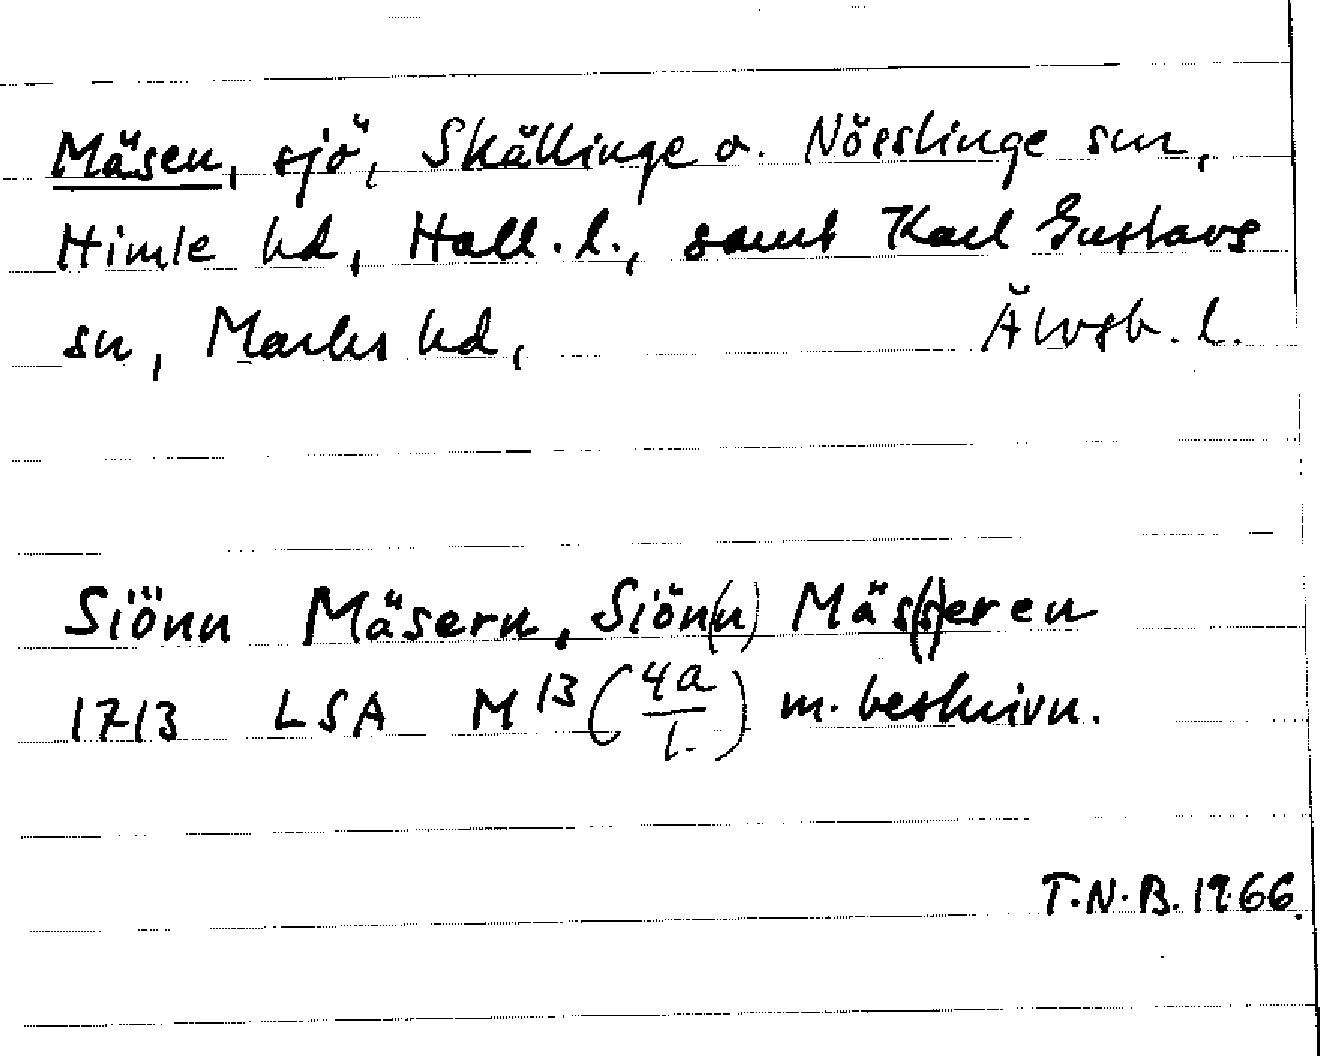 Mäsen, sjö, Skällinge o. Nösslinge snr,
Himle hd, Hall. l., samt Karl Gustavs
sn, Marks hd, Älvsb. l.
Siönn Mäsern, Siön(n) Mäs(s)eren
1713 LSA M 13 (4a/1.) m. beskrivn.
T.N.B. 1966.